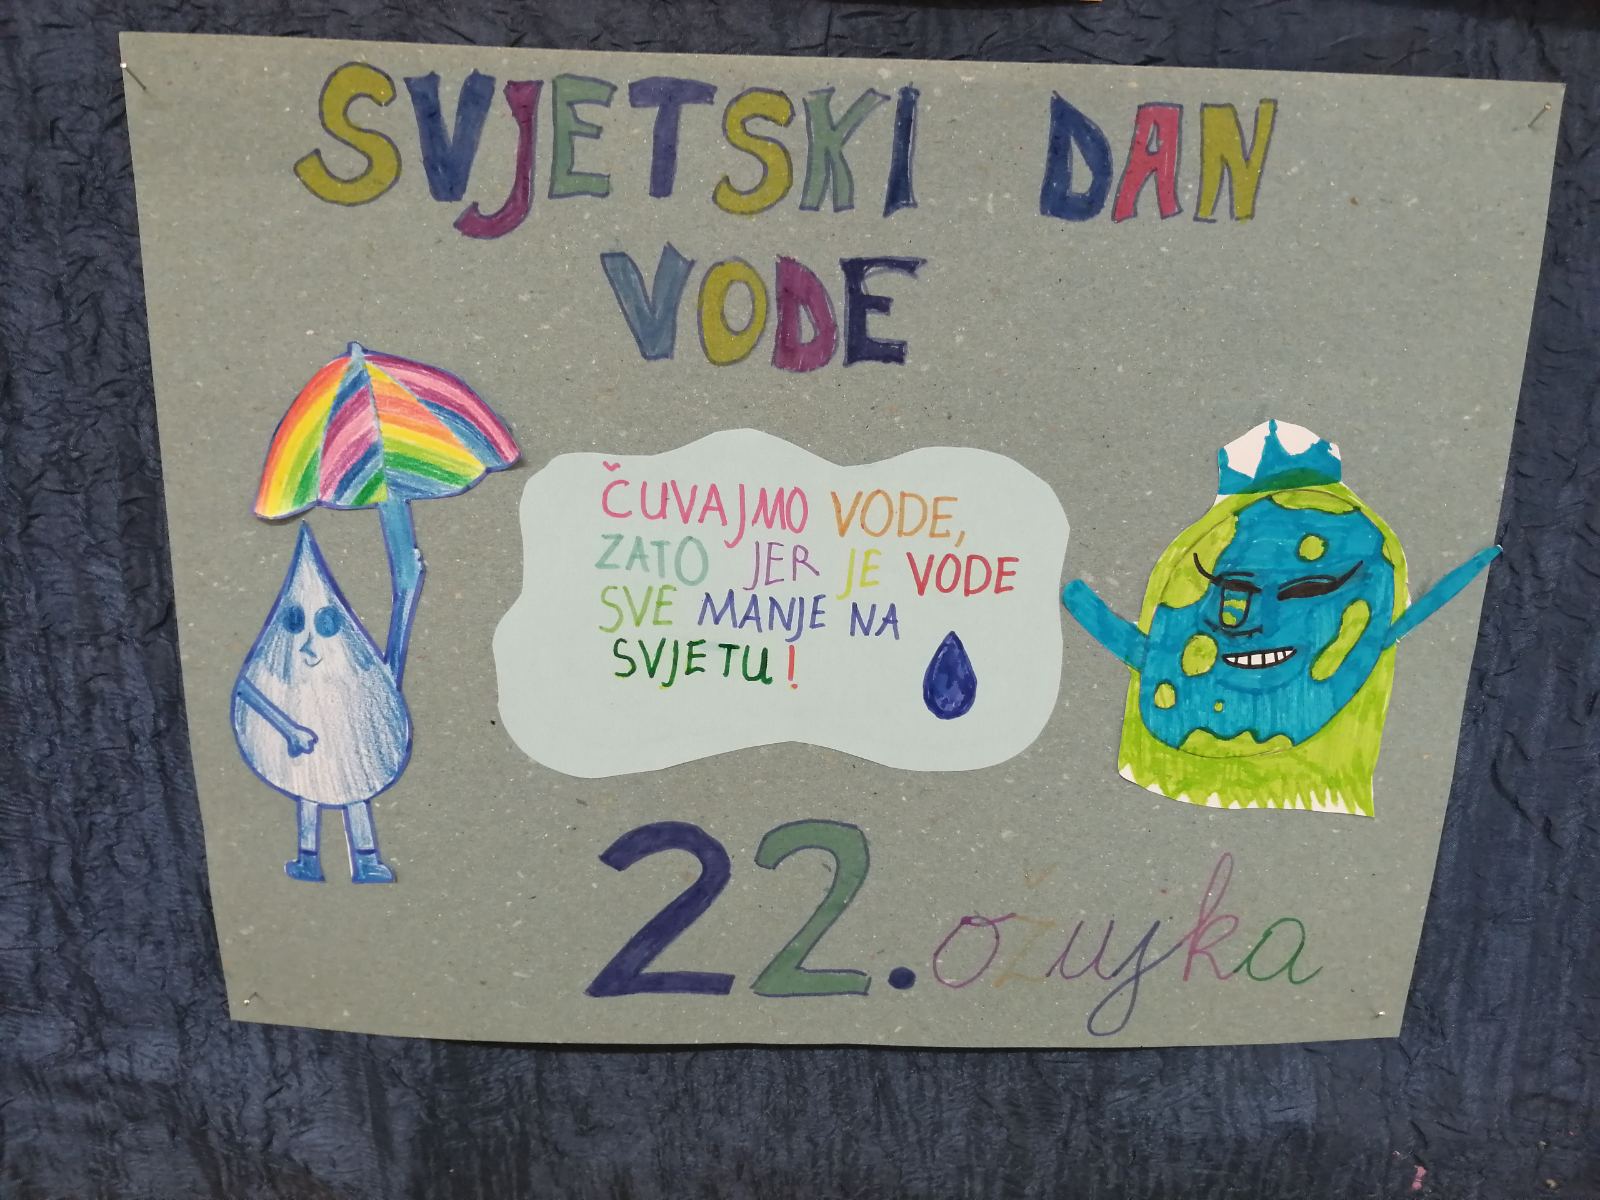 SVJETSKI DAN
VODE
ČUVAJMO VODE,
ZATO JER JE VODE
SVE MANJE NA
SVJETU!
22. ožujka